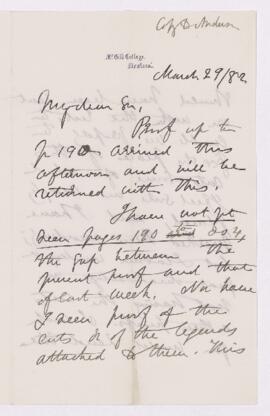 McGill College,
Montreal.
March 29/82
My dear Sir,
Proof up to
p 190 arrived this
afternoon and will be
returned with this.
I have not yet
seen pages 190
the gap between the
present proof and that
of last week. Nor have
I seen proof of the
cuts or of the legends
attached to them. This